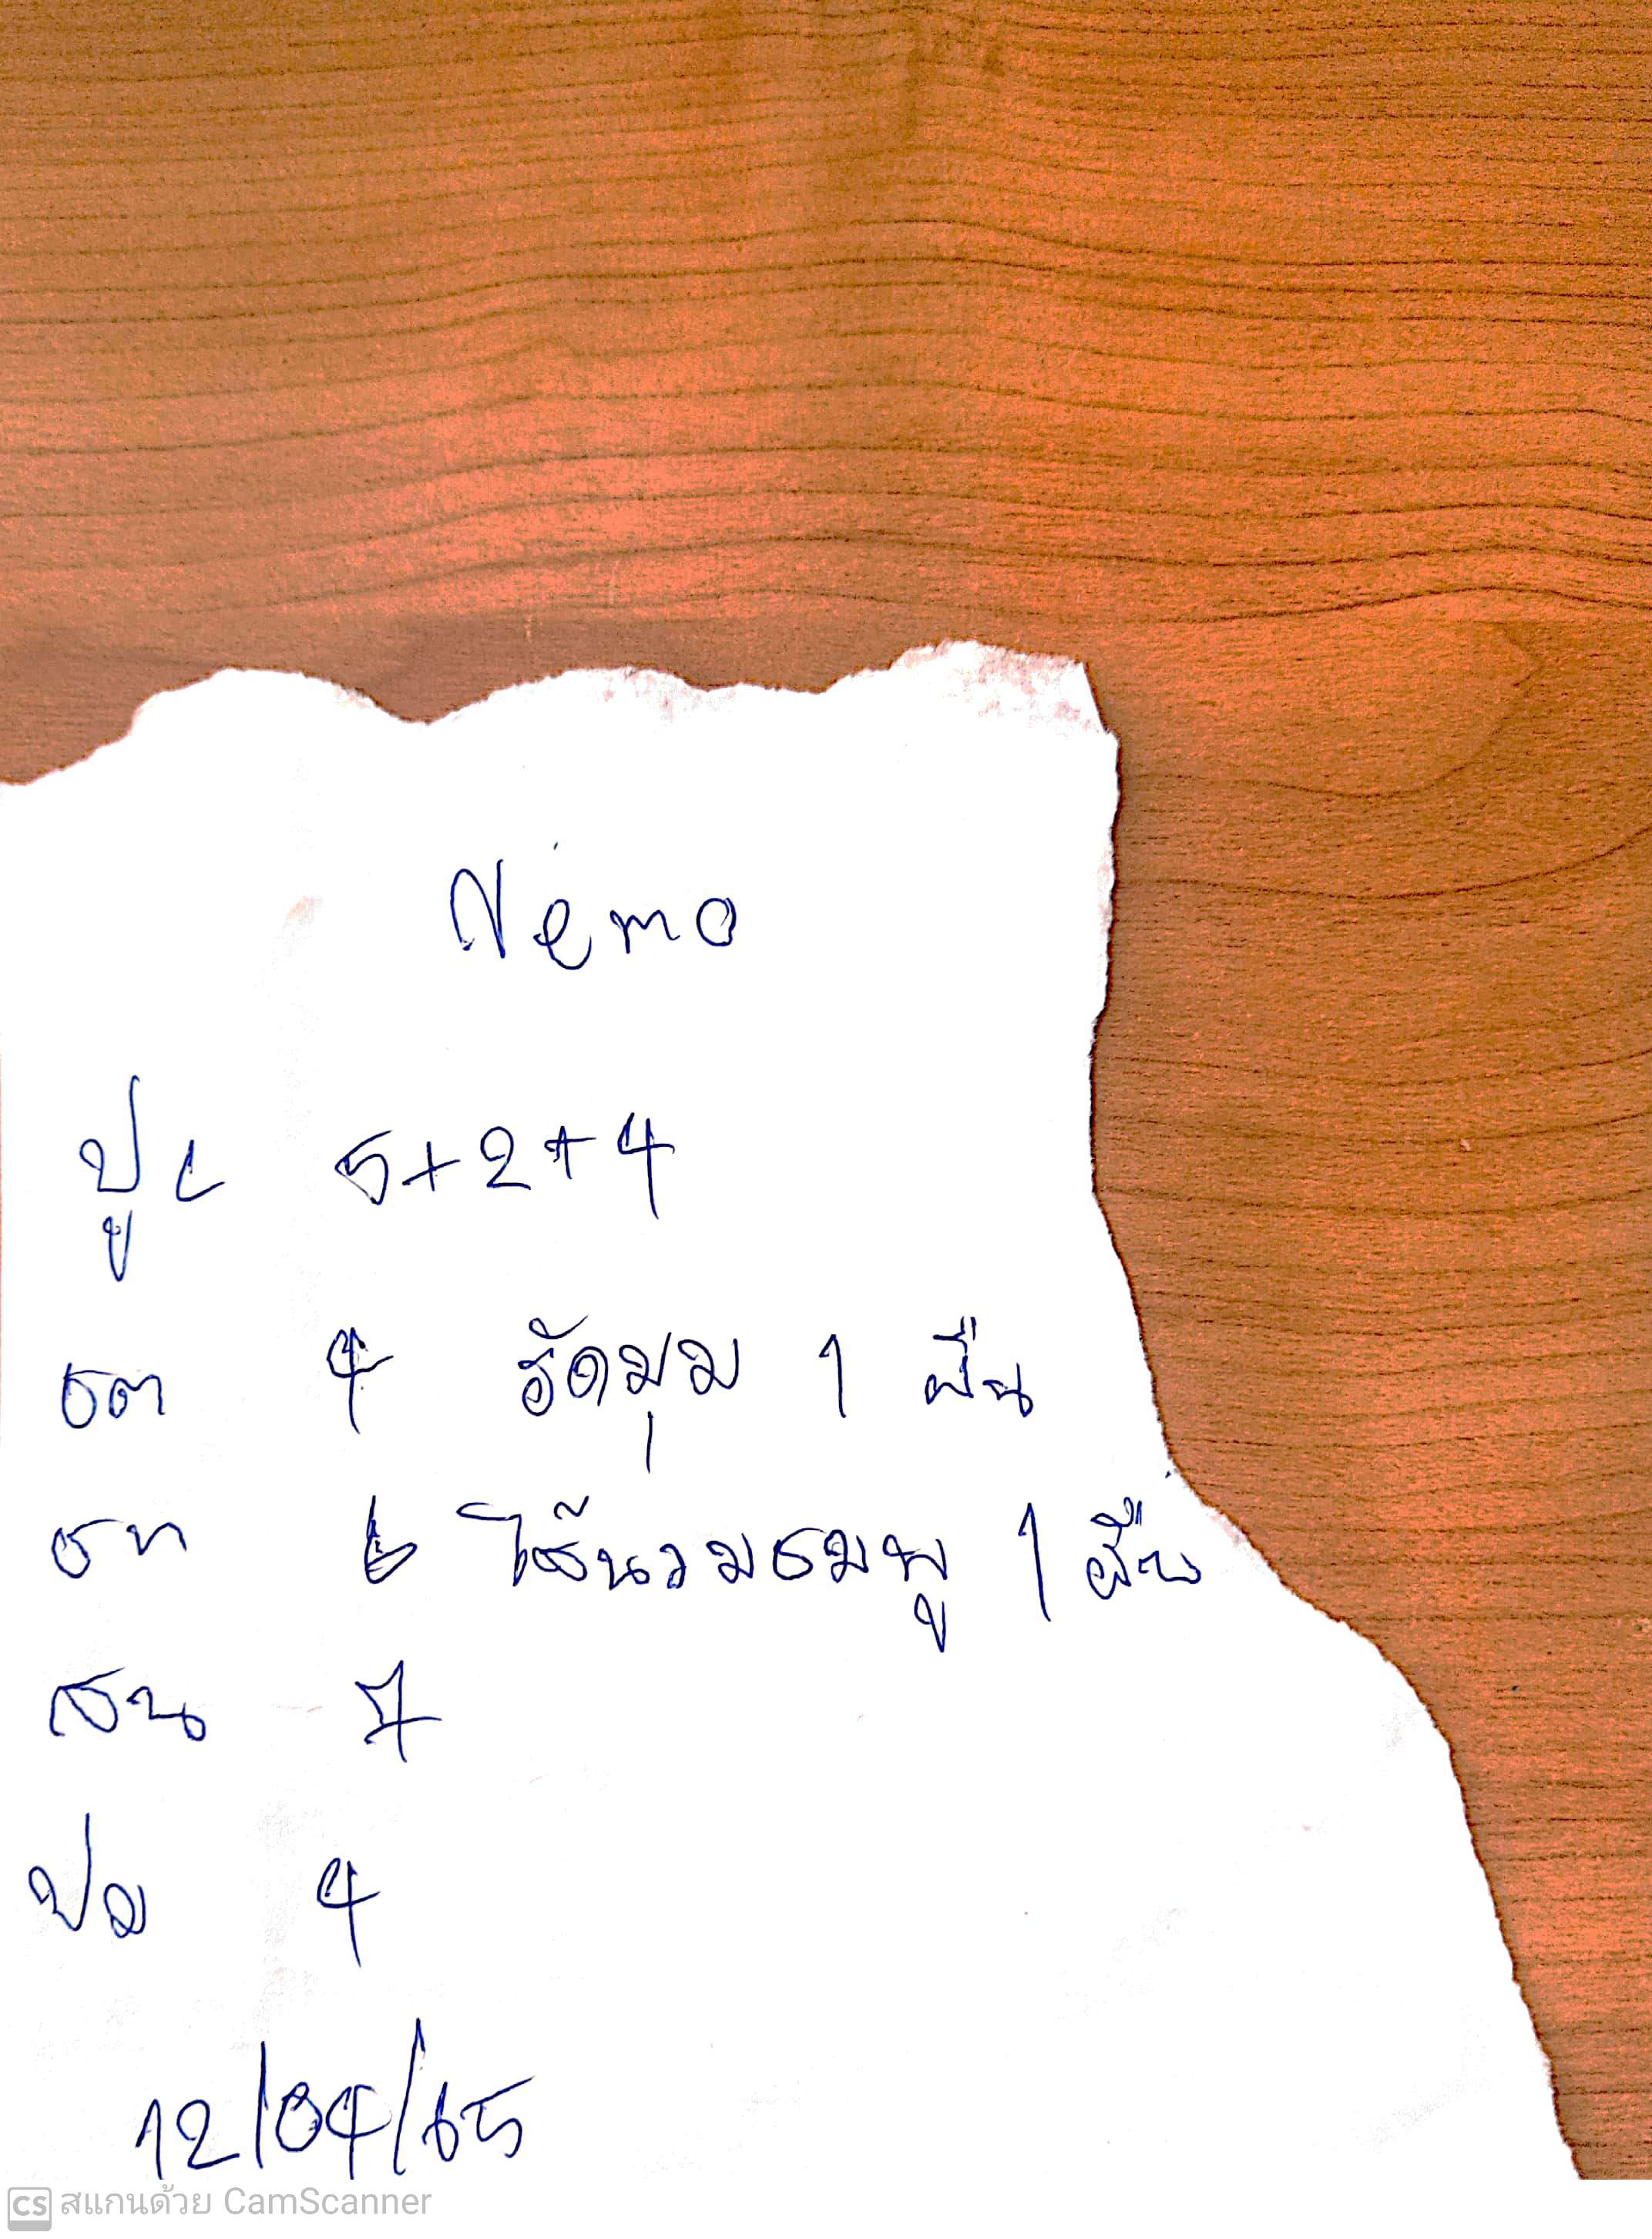 Nemo
ปูเ 5+2+4
ชต 4 รัดมุม 1 ผืน
ชท 6 ไส้นวมชมพู 1 ผืน
สน 7
ปม 4
12/04/65
CS สแกนด้วย CamScanner